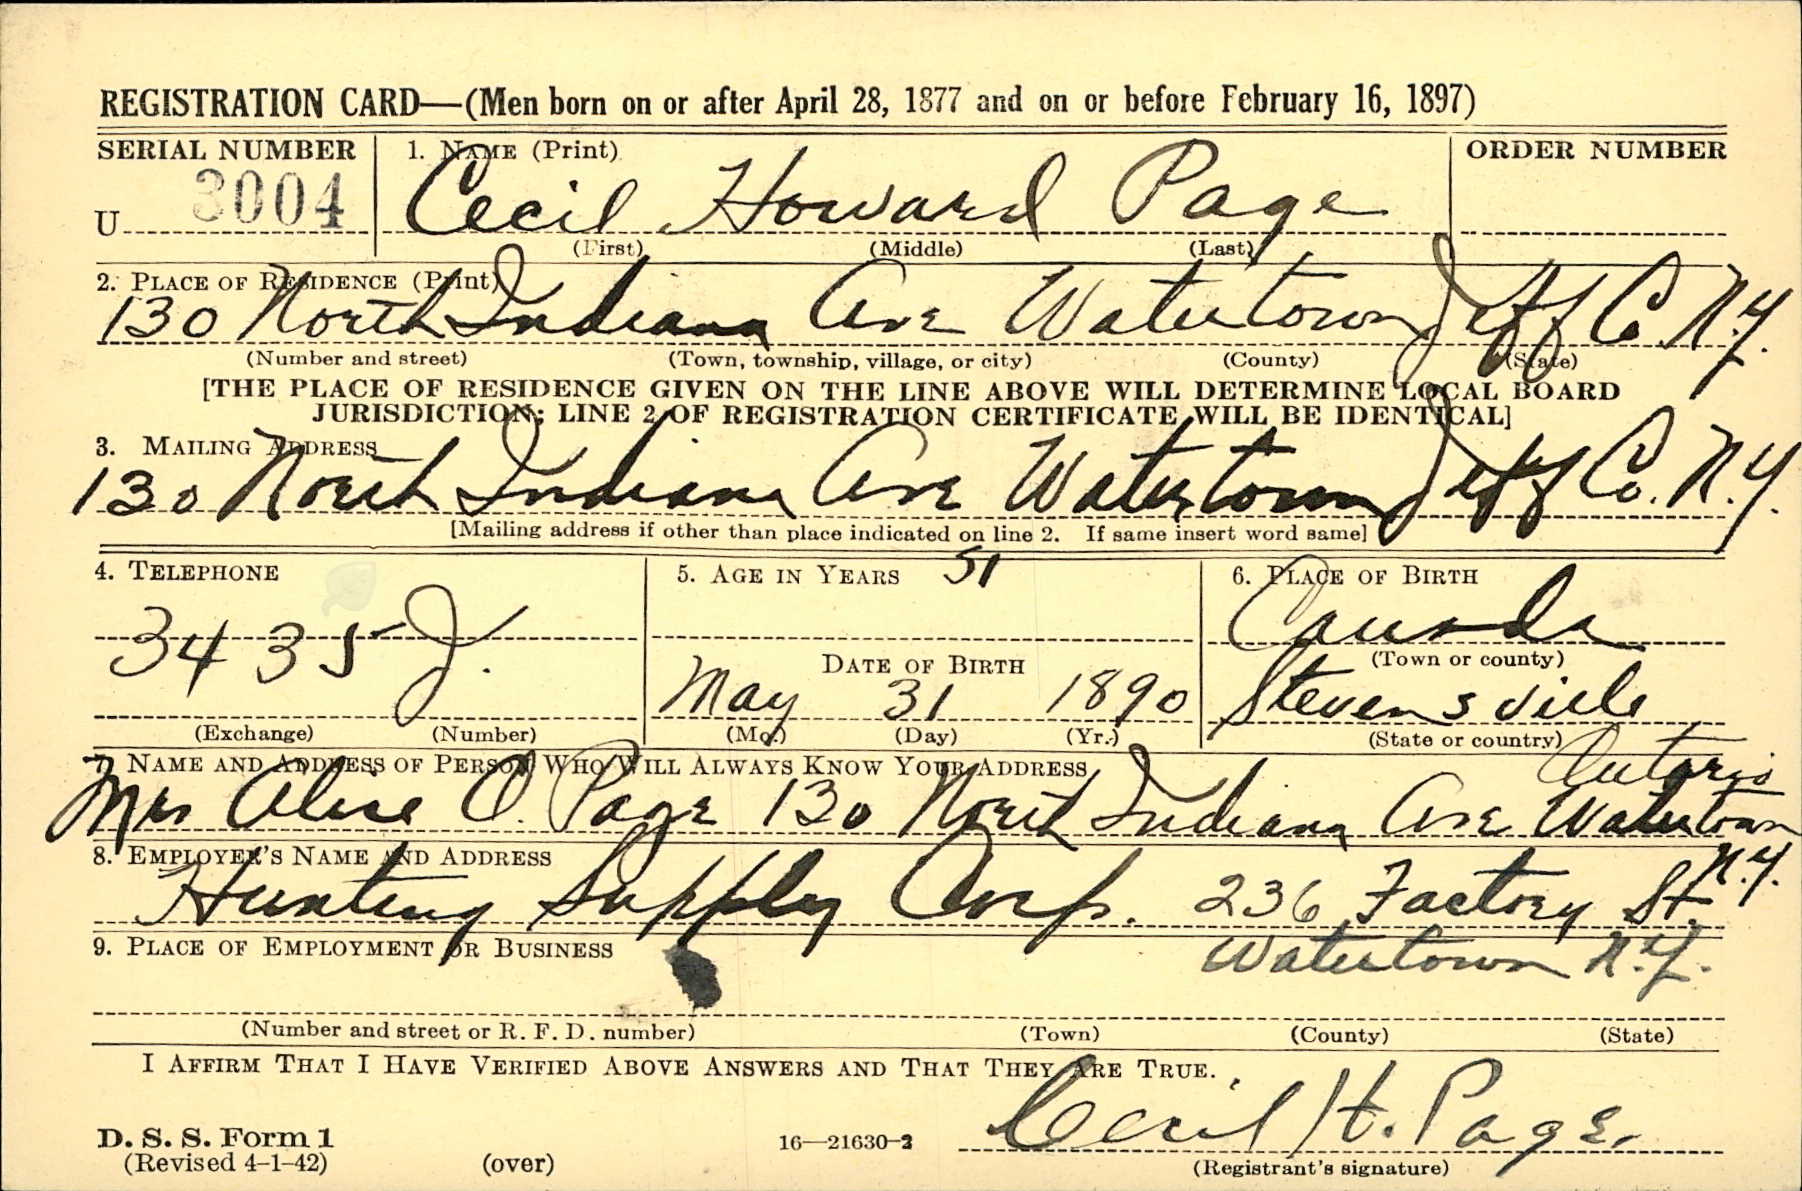 REGISTRATION CARD—(Men born on or after April 28, 1877 and on or before February 16, 1897)
SERIAL NUMBER
1. NAME (Print)
ORDER NUMBER
U 3004
Cecil Howard Page
(First) (Middle) (Last)
2. PLACE OF RESIDENCE (Print)
130 North Indiana Ave Watertown Jeff Co. N.Y.
(Number and street) (Town, township, village, or city) (County) (State)
[THE PLACE OF RESIDENCE GIVEN ON THE LINE ABOVE WILL DETERMINE LOCAL BOARD
JURISDICTION; LINE 2 OF REGISTRATION CERTIFICATE WILL BE IDENTICAL]
3. MAILING ADDRESS
130 North Indiana Ave Watertown Jeff Co. N.Y.
[Mailing address if other than place indicated on line 2. If same insert word same]
4. TELEPHONE
3435 J.
(Exchange) (Number)
5. AGE IN YEARS 51
DATE OF BIRTH
May 31 1890
(Mo.) (Day) (Yr.)
6. PLACE OF BIRTH
Canada
(Town or county)
Stevensville
(State or country)
Ontario
7. NAME AND ADDRESS OF PERSON WHO WILL ALWAYS KNOW YOUR ADDRESS
Mrs Alice O. Page 130 North Indiana Ave Watertown
N.Y.
8. EMPLOYER'S NAME AND ADDRESS
Hunting Supply Corp. 236 Factory St.
Watertown N.Y.
9. PLACE OF EMPLOYMENT OR BUSINESS
(Number and street or R. F. D. number) (Town) (County) (State)
I AFFIRM THAT I HAVE VERIFIED ABOVE ANSWERS AND THAT THEY ARE TRUE.
Cecil H. Page
D. S. S. Form 1
(Revised 4-1-42) (over) 16—21630-2
(Registrant's signature)